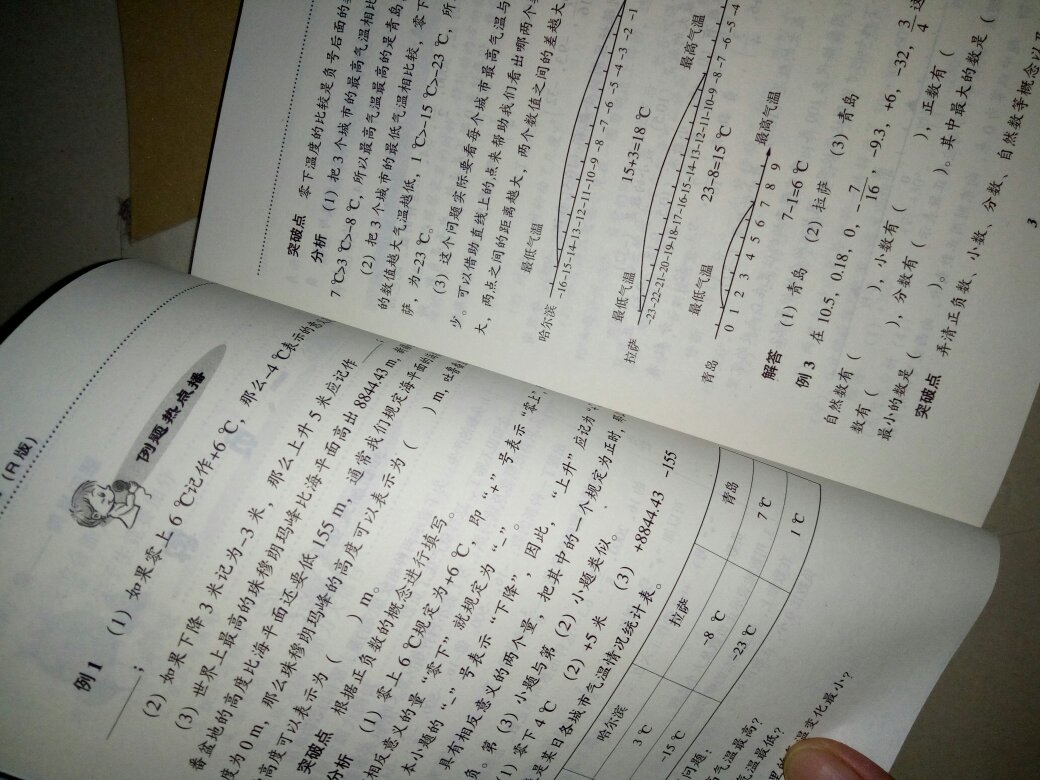 （R版）
例题热点播
例1 （1）如果零上 6 ℃记作+6 ℃，那么-4 ℃表示的
；
（2）如果下降 3 米记为-3 米，那么上升 5 米应记作
（3）世界上最高的珠穆朗玛峰比海平面高出 8844.43 m，
番盆地的高度比海平面还要低 155 m，通常我们规定海平面的
度为 0 m，那么珠穆朗玛峰的高度可以表示为（ ）m，吐鲁
高度可以表示为（ ）m。
突破点 根据正负数的概念进行填写。
分析 （1）零上 6 ℃规定为+6 ℃，即“+”号表示“零上”
相反意义的量“零下”就规定为“-”。
本小题的“-”号表示“下降”，因此，“上升”应记为“
具有相反意义的两个量，把其中的一个规定为正时，
负。第（3）小题与第（2）小题类似。
（1）零下 4 ℃ （2）+5 米 （3）+8844.43 -155
是某日各城市气温情况统计表。
哈尔滨 拉萨 青岛
3 ℃ -8 ℃ 7 ℃
-15 ℃ -23 ℃ 1 ℃
问题：
气温最高？
气温最低？
温变化最小？
突破点 零下温度的比较是负号后面的
分析 （1）把 3 个城市的最高气温相比
7 ℃>3 ℃>-8 ℃，所以最高气温最高的是青岛
（2）把 3 个城市的最低气温相比较，零下
的数值越大气温越低，1 ℃>-15 ℃>-23 ℃，所
萨，为-23 ℃。
（3）这个问题实际要看每个城市最高气温与
少。可以借助直线上的点来帮助我们看出哪两个
大，两点之间的距离越大，两个数值之间的差越大
最低气温
哈尔滨
-16-15-14-13-12-11-10-9 -8 -7 -6 -5 -4 -3 -2 -1
15+3=18 ℃
最低气温 最高气温
拉萨
-23-22-21-20-19-18-17-16-15-14-13-12-11-10-9 -8 -7 -6 -5 -4
23-8=15 ℃
最低气温 最高气温
青岛
0 1 2 3 4 5 6 7 8 9
7-1=6 ℃
解答 （1）青岛 （2）拉萨 （3）青岛
例 3 在 10.5，0.18，0，-7/16，-9.3，+6，-32，3/4 这
自然数有（ ），小数有（ ），正数有（
数有（ ），分数有（ ）。其中最大的数是（
最小的数是（ ）。
突破点 弄清正负数、小数、分数、自然数等概念以及
3